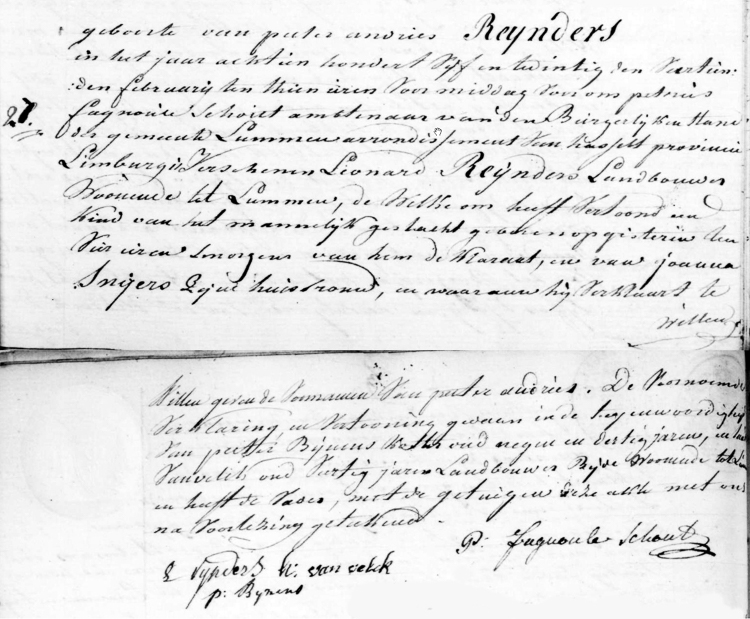 geboorte van peeter andries Reynders
in het jaar achtien hondert Vyf en twintig den Veertien-
:den februarij ten thien uren Voor middag Voor ons peterus
27.
Fagnoule Schout ambtenaar van den Burgerlyken Stand
der gemeente Lummen arrondissement Van hasselt provincie
Limburg: is Verschenen Leonard Reynders Landbouwer
Woonende tot Lummen, de Welke ons heeft Vertoond een
kind van het mannelijk geslacht geboren op gisteren ten
Vier uren smorgens van hem de klaraat, en van joanna
Snyers Zyne huisvrouw, en waar aen hij Verklaart te
Willen
Willen geven de Voornamen Van peeter andries. De Voornoemde
Verklaring en Vertooning gedaan in de tegenwoordigheyd
Van peeter Bynens oud negen en dertig jaren, en
Vanvelck oud Vertig jaren Landbouwers Byde Woonende tot
en heeft de Vader, met de getuigen deze akte met ons
na Voorlezing geteekend.
P: Fagnoule Schout
L Rynders W. van velck
p: Bynens